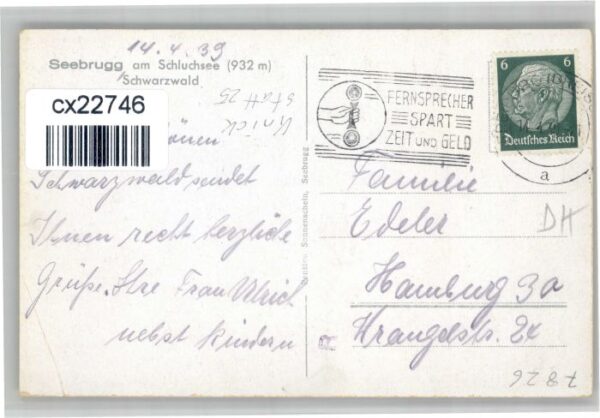 14.4.39
Seebrugg am Schluchsee (932 m)
Schwarzwald
cx22746
Knick
statt 25
önen
Schwarzwald sendet
Ihnen recht herzliche
Grüße. Ihre Frau Ulrich
nebst Kindern
Sonnenschein, Seebrugg
FERNSPRECHER
SPART
ZEIT UND GELD
a
6 6
Deutsches Reich
Familie
Edeler
Hamburg 30
Wrangelstr.
DH
7826